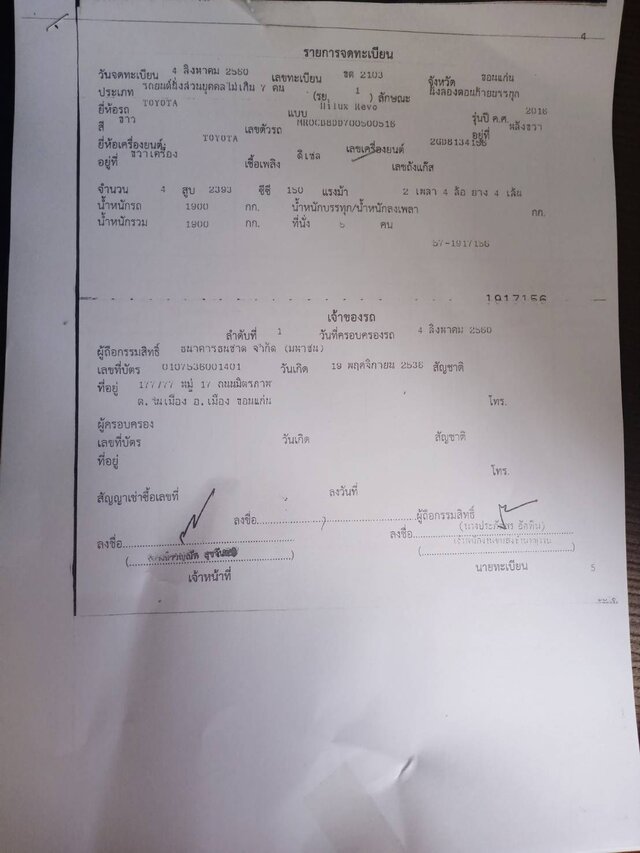 4
รายการจดทะเบียน
วันจดทะเบียน 4 สิงหาคม 2560 เลขทะเบียน ขต 2103 จังหวัด ขอนแก่น
ประเภท รถยนต์นั่งส่วนบุคคลไม่เกิน 7 คน (รย. 1 ) ลักษณะ นั่งสองตอนท้ายบรรทุก
ยี่ห้อรถ TOYOTA แบบ Hilux Revo รุ่นปี ค.ศ. 2016
สี ขาว เลขตัวรถ อยู่ที่
ยี่ห้อเครื่องยนต์ TOYOTA เลขเครื่องยนต์
อยู่ที่ ขวาเครื่อง เชื้อเพลิง ดีเซล เลขถังแก๊ส
จำนวน 4 สูบ 2393 ซีซี 150 แรงม้า 2 เพลา 4 ล้อ ยาง 4 เส้น
น้ำหนักรถ 1900 กก. น้ำหนักบรรทุก/น้ำหนักลงเพลา กก.
น้ำหนักรวม 1900 กก. ที่นั่ง คน
57-1917156
1917156
เจ้าของรถ
ลำดับที่ 1 วันที่ครอบครองรถ 4 สิงหาคม 2560
ผู้ถือกรรมสิทธิ์ ธนาคารธนชาต จำกัด (มหาชน)
เลขที่บัตร 0107536001401 วันเกิด 19 พฤศจิกายน 2536 สัญชาติ
ที่อยู่ 177/77 หมู่ 17 ถนนมิตรภาพ
ต.ในเมือง อ.เมือง ขอนแก่น โทร.
ผู้ครอบครอง
เลขที่บัตร วันเกิด สัญชาติ
ที่อยู่
โทร.
สัญญาเช่าซื้อเลขที่ ลงวันที่
ลงชื่อ ผู้ถือกรรมสิทธิ์
ลงชื่อ ลงชื่อ
เจ้าหน้าที่ นายทะเบียน 5